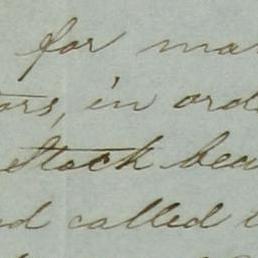 for ma
ors, in ord
stock bea
ed called